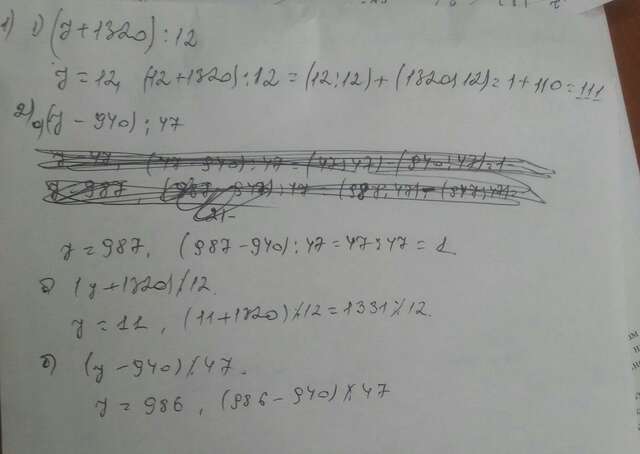 1) 1) (y+1320):12
y=12, (12+1320):12=(12:12)+(1320:12)=1+110=111
2) a) (y-940):47
y=987, (987-940):47=47:47=1
б) (y+1320)⁒12.
y=11, (11+1320)⁒12=1331⁒12.
б) (y-940)⁒47.
y=986, (986-940)⁒47